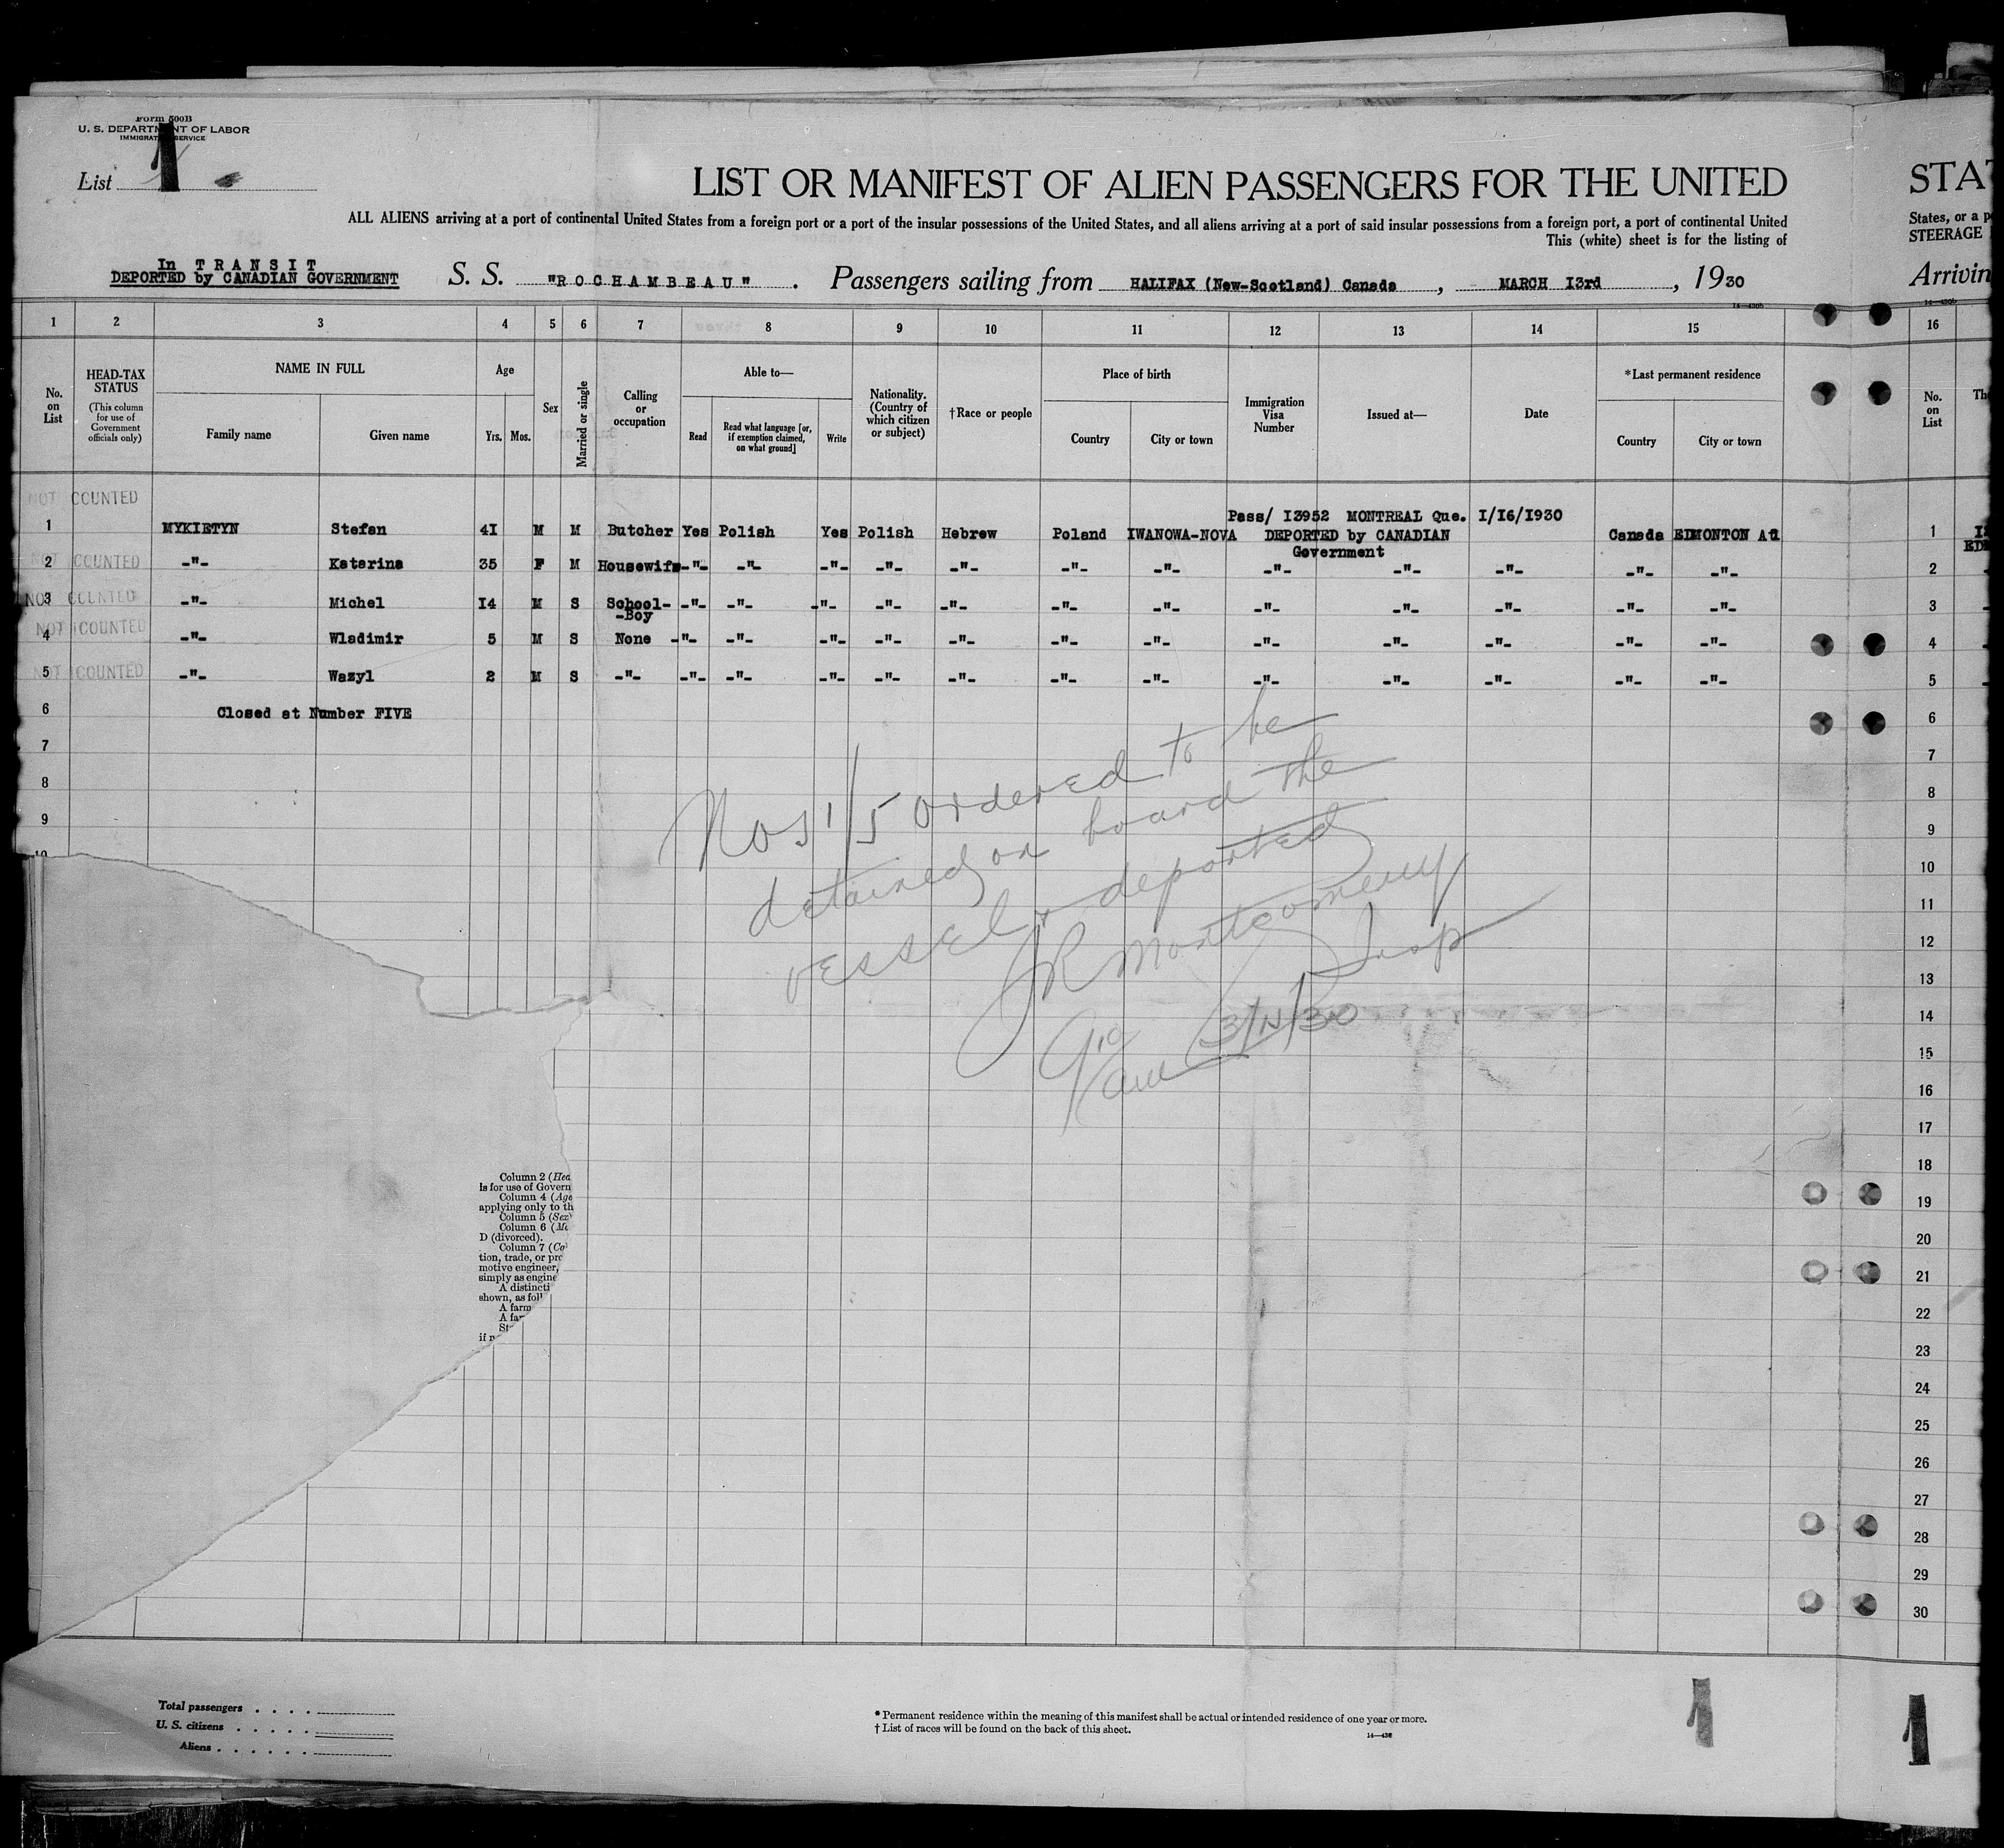 Form 500B
U. S. DEPARTMENT OF LABOR
IMMIGRATION SERVICE
List 1
LIST OR MANIFEST OF ALIEN PASSENGERS FOR THE UNITED
STA
ALL ALIENS arriving at a port of continental United States from a foreign port or a port of the insular possessions of the United States, and all aliens arriving at a port of said insular possessions from a foreign port, a port of continental United
States, or a p
This (white) sheet is for the listing of
STEERAGE
In TRANSIT
DEPORTED by CANADIAN GOVERNMENT
S. S. "ROCHAMBEAU". Passengers sailing from HALIFAX (New-Scotland) Canada, MARCH I3rd, 1930
Arrivin
1 2 3 4 5 6 7 8 9 10 11 12 13 14 15 16
No. on List
HEAD-TAX STATUS
(This column for use of Government officials only)
NAME IN FULL
Family name
Given name
Age
Yrs. Mos.
Sex
Married or single
Calling or occupation
Able to—
Read
Read what language [or, if exemption claimed, on what ground]
Write
Nationality. (Country of which citizen or subject)
†Race or people
Place of birth
Country
City or town
Immigration Visa Number
Issued at—
Date
*Last permanent residence
Country
City or town
No. on List
Th
NOT COUNTED
Pass/ I3952 MONTREAL Que. I/I6/I930
1 MYKIETYN Stefan 4I M M Butcher Yes Polish Yes Polish Hebrew Poland IWANOWA-NOVA DEPORTED by CANADIAN Government Canada EDMONTON 1
NOT COUNTED
2 -"- Katarina 35 F M Housewife -"- -"- -"- -"- -"- -"- -"- -"- -"- -"- -"- -"- 2
NOT COUNTED
3 -"- Michel I4 M S School-Boy -"- -"- -"- -"- -"- -"- -"- -"- -"- -"- -"- -"- 3
NOT COUNTED
4 -"- Wladimir 5 M S None -"- -"- -"- -"- -"- -"- -"- -"- -"- -"- -"- -"- 4
NOT COUNTED
5 -"- Wazyl 2 M S -"- -"- -"- -"- -"- -"- -"- -"- -"- -"- -"- -"- -"- 5
6 Closed at Number FIVE 6
7 7
8 8
9 9
10 10
11
12
13
14
15
16
17
18
19
20
21
22
23
24
25
26
27
28
29
30
Nos 1/5 ordered to be
detained on board the
vessel & deported
JR Montgomery
Insp
Column 2 (Hea
is for use of Govern
Column 4 (Age
applying only to th
Column 5 (Sex
Column 6 (Ma
D (divorced).
Column 7 (Co
tion, trade, or pro
motive engineer,
simply as engine
A distincti
shown, as foll
A farm
A far
St
if n
Total passengers
U. S. citizens
Aliens
* Permanent residence within the meaning of this manifest shall be actual or intended residence of one year or more.
† List of races will be found on the back of this sheet.
1
1